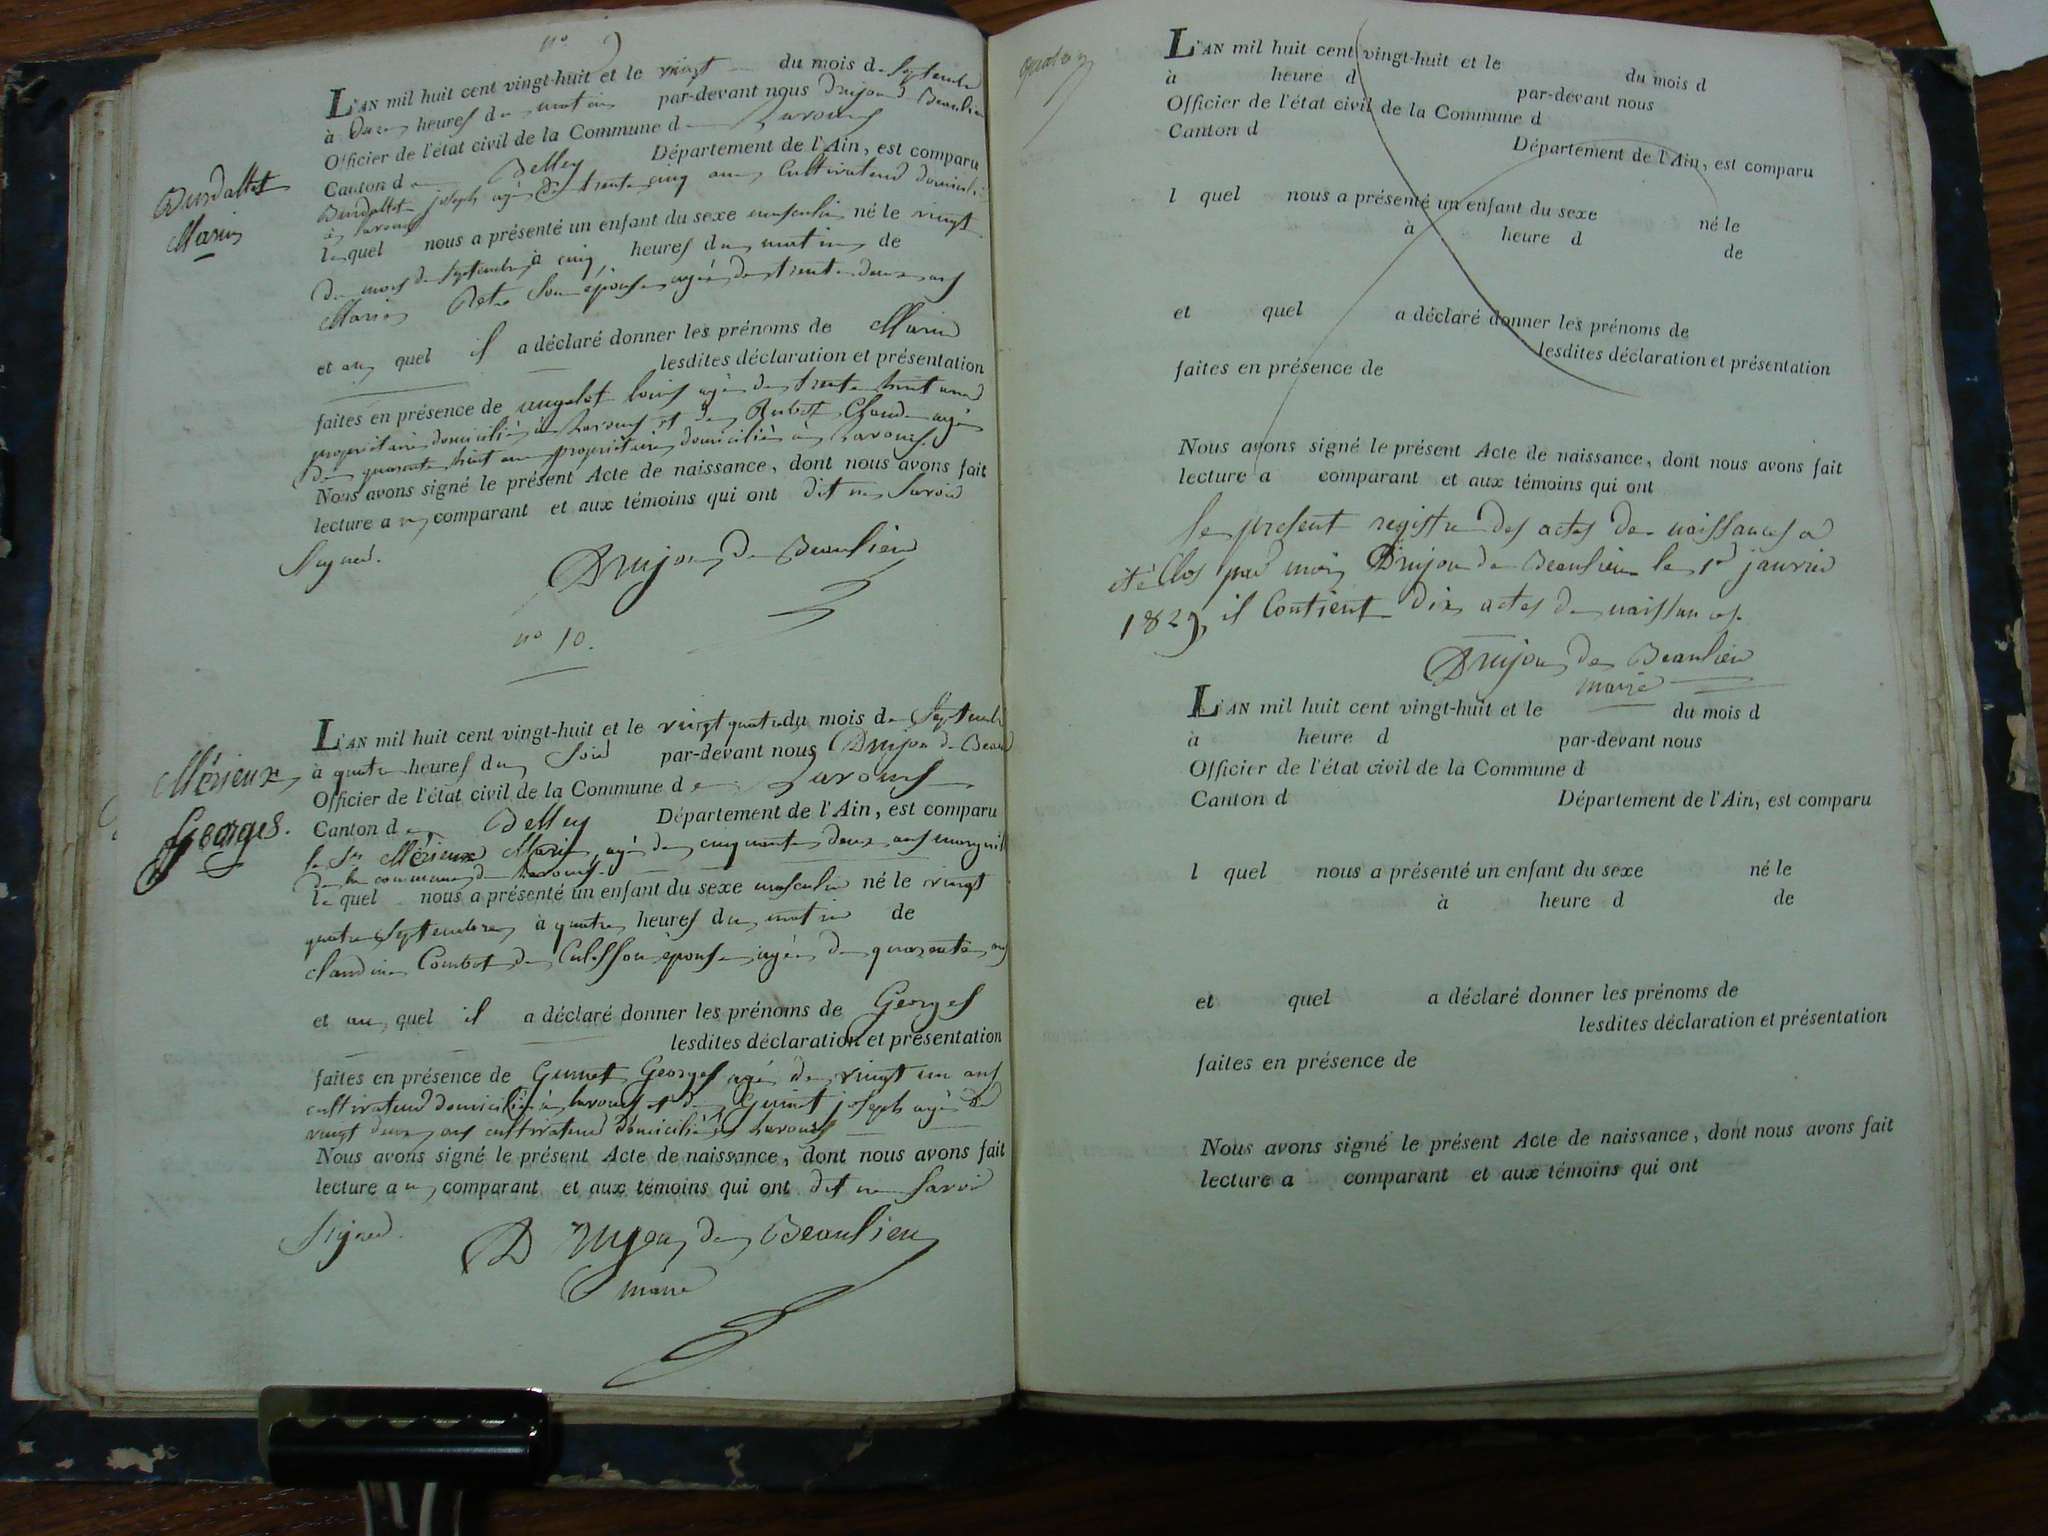 n° 9
L'AN mil huit cent vingt-huit et le vingt du mois de Septembre
à onze heures du matin par-devant nous Drujon de Beaulieu
Officier de l'état civil de la Commune de Lavours
Canton de Belley Département de l'Ain, est comparu
Burdallet joseph agé de trente cinq ans Cultivateur domicilié
à Lavours
Burdallet
Marin
lequel nous a présenté un enfant du sexe masculin né le vingt
du mois de Septembre à cinq heures du matin de
Marie son épouse agée de trente deux ans
et au quel il a déclaré donner les prénoms de Marin
lesdites déclaration et présentation
faites en présence de louis agé de trente huit ans
propriétaire domicilié à Lavours et de Rubat Claude agé
de quarante huit ans propriétaire domicilié à Lavours.
Nous avons signé le présent Acte de naissance, dont nous avons fait
lecture au comparant et aux témoins qui ont dit ne Savoir
Signer.
Drujon de Beaulieu
n° 10.
L'AN mil huit cent vingt-huit et le vingt quatre du mois de Septembre
à quatre heures du Soir par-devant nous Drujon de Beau
Officier de l'état civil de la Commune de Lavours
Canton de Belley Département de l'Ain, est comparu
Mérieux
Georges.
le Sr Mérieux Marin, agé de cinquante deux ans
de la commune de Lavours.
lequel nous a présenté un enfant du sexe masculin né le vingt
quatre Septembre à quatre heures du matin de
Claudine son épouse agée de quarante ans
et au quel il a déclaré donner les prénoms de Georges
lesdites déclaration et présentation
faites en présence de Guinet Georges agé de vingt un ans
cultivateur domicilié à Lavours et de Guinet joseph agé de
vingt deux ans cultivateur domicilié à Lavours
Nous avons signé le présent Acte de naissance, dont nous avons fait
lecture au comparant et aux témoins qui ont dit ne Savoir
Signer.
Drujon de Beaulieu
maire
L'AN mil huit cent vingt-huit et le du mois d
à heure d par-devant nous
Officier de l'état civil de la Commune d
Canton d Département de l'Ain, est comparu
l quel nous a présenté un enfant du sexe né le
à heure d de
et quel a déclaré donner les prénoms de
lesdites déclaration et présentation
faites en présence de
Nous avons signé le présent Acte de naissance, dont nous avons fait
lecture a comparant et aux témoins qui ont
Le present registre des actes de naissances a
été Clos par moi Drujon de Beaulieu le 1er janvier
1829, il Contient dix actes de naissances.
Drujon de Beaulieu
maire
L'AN mil huit cent vingt-huit et le du mois d
à heure d par-devant nous
Officier de l'état civil de la Commune d
Canton d Département de l'Ain, est comparu
l quel nous a présenté un enfant du sexe né le
à heure d de
et quel a déclaré donner les prénoms de
lesdites déclaration et présentation
faites en présence de
Nous avons signé le présent Acte de naissance, dont nous avons fait
lecture a comparant et aux témoins qui ont